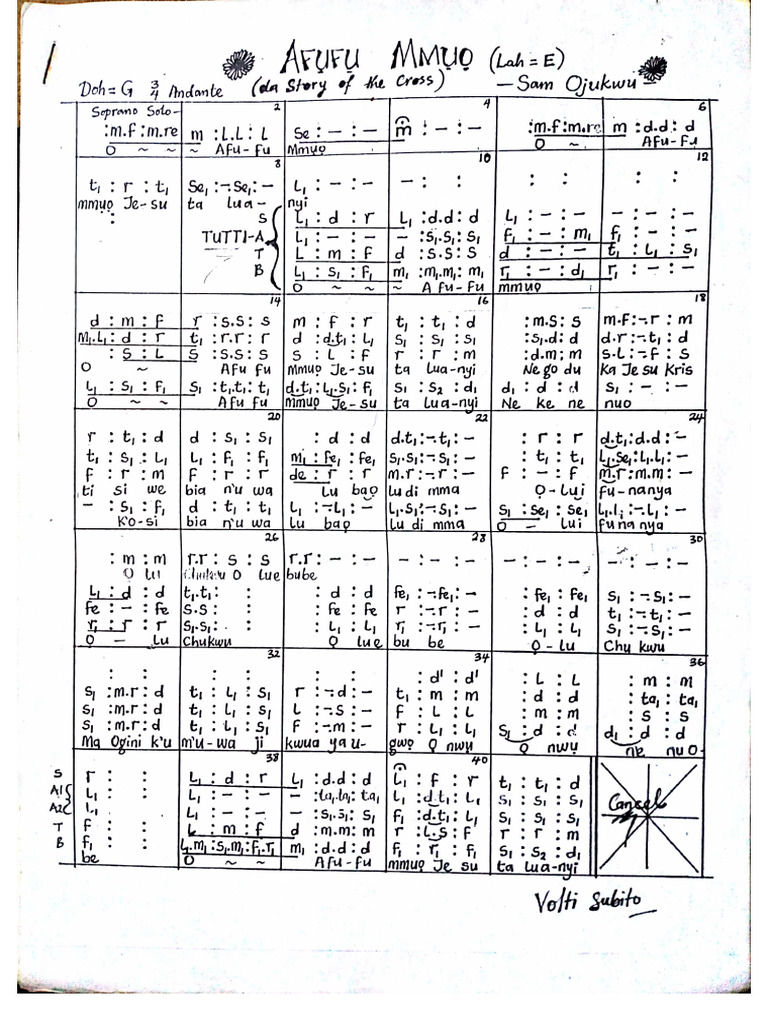 1
AFỤFỤ MMỤỌ (Lah = E)
Doh = G 3/4 Andante (da Story of the Cross) — Sam Ojukwu —
Soprano Solo- 2 4 6
:m.f:m.re m :L.L: L Se: – : – m : – : – :m.f:m.re m :d.d: d
O ~ ~ Afu-fu Mmụọ O ~ Afu-Fu
8 10 12
t₁ : r : t₁ Se₁:-.Se₁:– L₁ : – : – – : : : : : :
mmụọ Je-su ta lua- nyi
: S L₁ : d : r L₁ :d.d: d L₁ : – : – – : – : –
TUTTI-A L₁ : – : – – :S₁.S₁: S₁ f₁ : – : m₁ f₁ : – : –
T L : m : F d :S.S: S d : – : – t₁ : L₁ : S₁
B L₁ : S₁ : F₁ m₁ :m₁.m₁: m₁ r₁ : – : d₁ r₁ : – : –
O ~ ~ A fu-Fu mmụọ
14 16 18
d : m : f r :S.S: S m : f : r t₁ : t₁ : d :m.S: S m.F:-.r: m
M₁.L₁: d : r t₁ :r.r: r d :d.t₁: L₁ S₁ : S₁ : S₁ :S₁.d: d d.r:-.t₁: d
: S : L S :S.S: S S : L : f r : r : m :d.m: m S.L:-.f: S
O ~ Afu fu Mmụọ Je-su ta Lua-nyi Ne go du Ka Je su Kris
L₁ : S₁ : F₁ S₁ :t₁.t₁: t₁ d.t₁:L₁.S₁: f₁ S₁ : S₂ : d₁ d₁ : d : d S₁ : – : –
O ~ ~ A fu fu mmụọ Je-su ta lua-nyi Ne ke ne nuo
20 22 24
r : t₁ : d d : S₁ : S₁ : d : d d.t₁:-.t₁: – : r : r d.t₁:d.d: –
t₁ : S₁ : L₁ L₁ : f₁ : f₁ m₁ : fe₁ : fe₁ S₁.S₁:-.S₁: – : t₁ : t₁ L₁.Se₁:L₁.L₁: –
f : r : m F : r : r de : r : r m.r:-.r: – f : – : f m.r:m.m: –
ti si we bia n'u wa Lu bạọ lu di mma O-Lui fu-nanya
– : S₁ : f₁ d : t₁ : t₁ L₁ :-.L₁: – L₁.S₁:-.S₁: – S₁ : Se₁ : Se₁ L₁.L₁:-.L₁: –
K'o-si bia n'u wa Lu bạọ Lu di mma O – lui funanya
26 28 30
: m : m r.r : S : S r.r: – : – – : – : – – : – : – – : – : –
O lu O lue bube
L₁ : d : d t₁.t₁: : : d : d fe₁ :-.fe₁: – : fe₁ : Fe₁ S₁ :-.S₁: –
fe : – : fe S.S : : : fe : fe r :-.r: – : d : d t₁ :-.t₁: –
r₁ : r : r S₁.S₁: : : L₁ : L₁ r₁ :-.r₁: – : L₁ : L₁ S₁ :-.S₁: –
O – Lu Chukwu O lue bu be O-lu Chu kwu
32 34 36
: : : : : : : d' : d' : L : L : m : m
S₁ :m.r: d t₁ : L₁ : S₁ r :-.d: – t₁ : m : m : d : d : ta₁ : ta₁
S₁ :m.r: d t₁ : L₁ : S₁ L :-.S: – f : L : L : m : m : S : S
S₁ :m.r: d t₁ : L₁ : S₁ F :-.m: – r : L₁ : L₁ S₁ : d : d d₁ : d : d
Ma Ogini k'u m'u-wa ji kwua ya u- gwọ Ọ nwụ Ọ nwụ ne nu O-
38 40
S r : : L₁ : d : r L₁ :d.d: d L₁ : f : r t₁ : t₁ : d
A1 L₁ : : L₁ : – : – – :ta₁.ta₁: ta₁ L₁ :d.t₁: L₁ S₁ : S₁ : S₁
A2 L₁ : : L₁ : – : – – :S₁.S₁: S₁ f₁ :d.t₁: L₁ S₁ : S₁ : S₁ Cancel
T f : : L : m : f d :m.m: m r :L.S: F r : r : m
B f₁ : : L₁.m₁:S₁.m₁:f₁.r₁ m₁ :d.d: d f₁ : r₁ : f₁ S₁ : S₂ : d₁
be O ~ ~ Afu-fu mmụọ Je su ta lua-nyi
Volti Subito